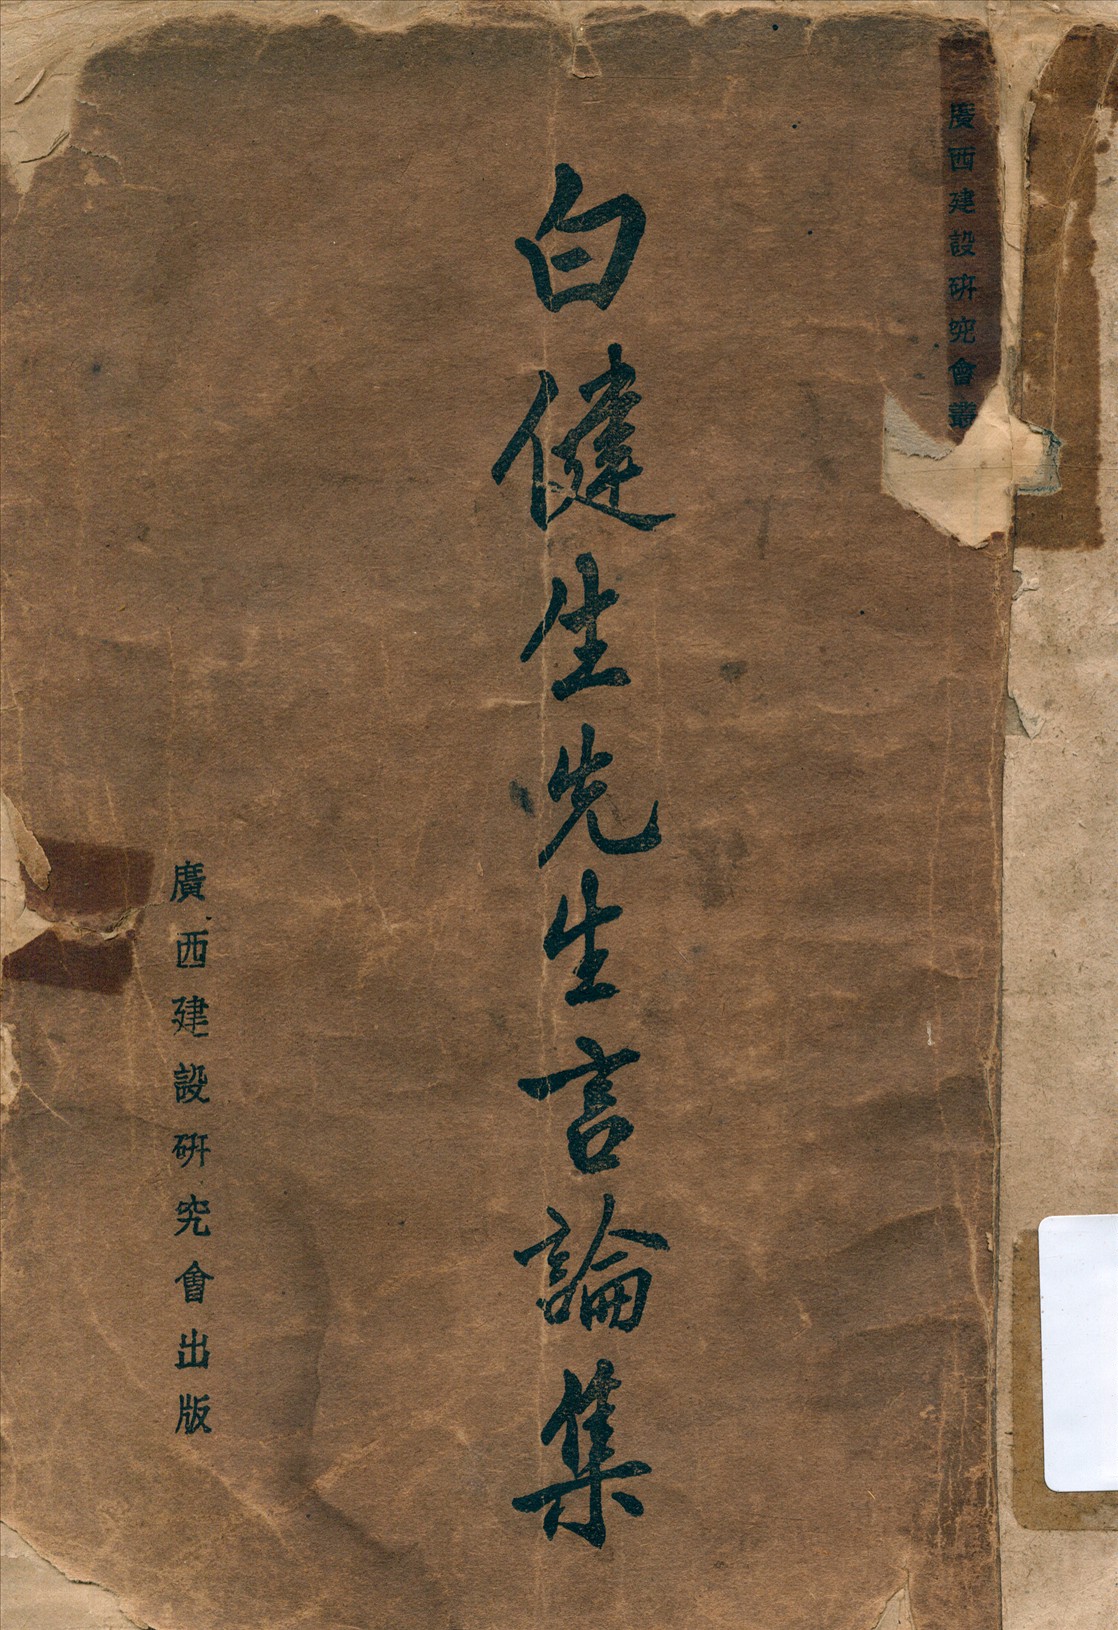 廣西建設研究會叢
白健生先生言論集
廣西建設研究會出版